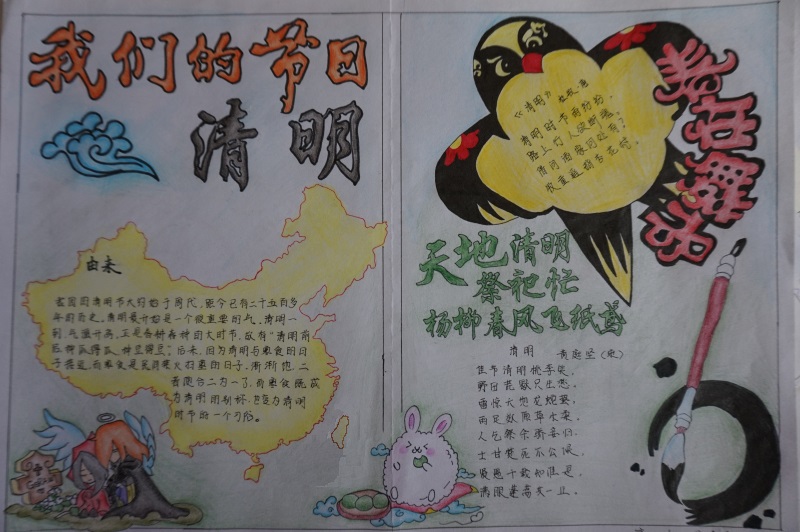 我们的节日
清明
由来
我国的清明节大约始于周代，距今已有二千五百多
年的历史。清明最开始是一个很重要的节气，清明一
到，气温升高，正是春耕春种的大时节，故有"清明前
后，种瓜得瓜，种豆得豆"。后来，因为清明与寒食的日
子接近，而寒食是民间禁火扫墓的日子，渐渐地，二
者便合二为一了，而寒食既成
为清明的别称，也变为清明
时节的一个习俗。
《清明》 杜牧·唐
清明时节雨纷纷，
路上行人欲断魂。
借问酒家何处有？
牧童遥指杏花村。
天地清明
祭祀忙
杨柳春风飞纸鸢
清明 黄庭坚（宋）
佳节清明桃李笑，
野田荒
雷惊天地龙蛇蛰，
雨足郊原草木柔。
人乞祭余骄妾妇，
士甘焚死不公侯。
贤愚千载知谁是，
满眼蓬蒿共一丘。